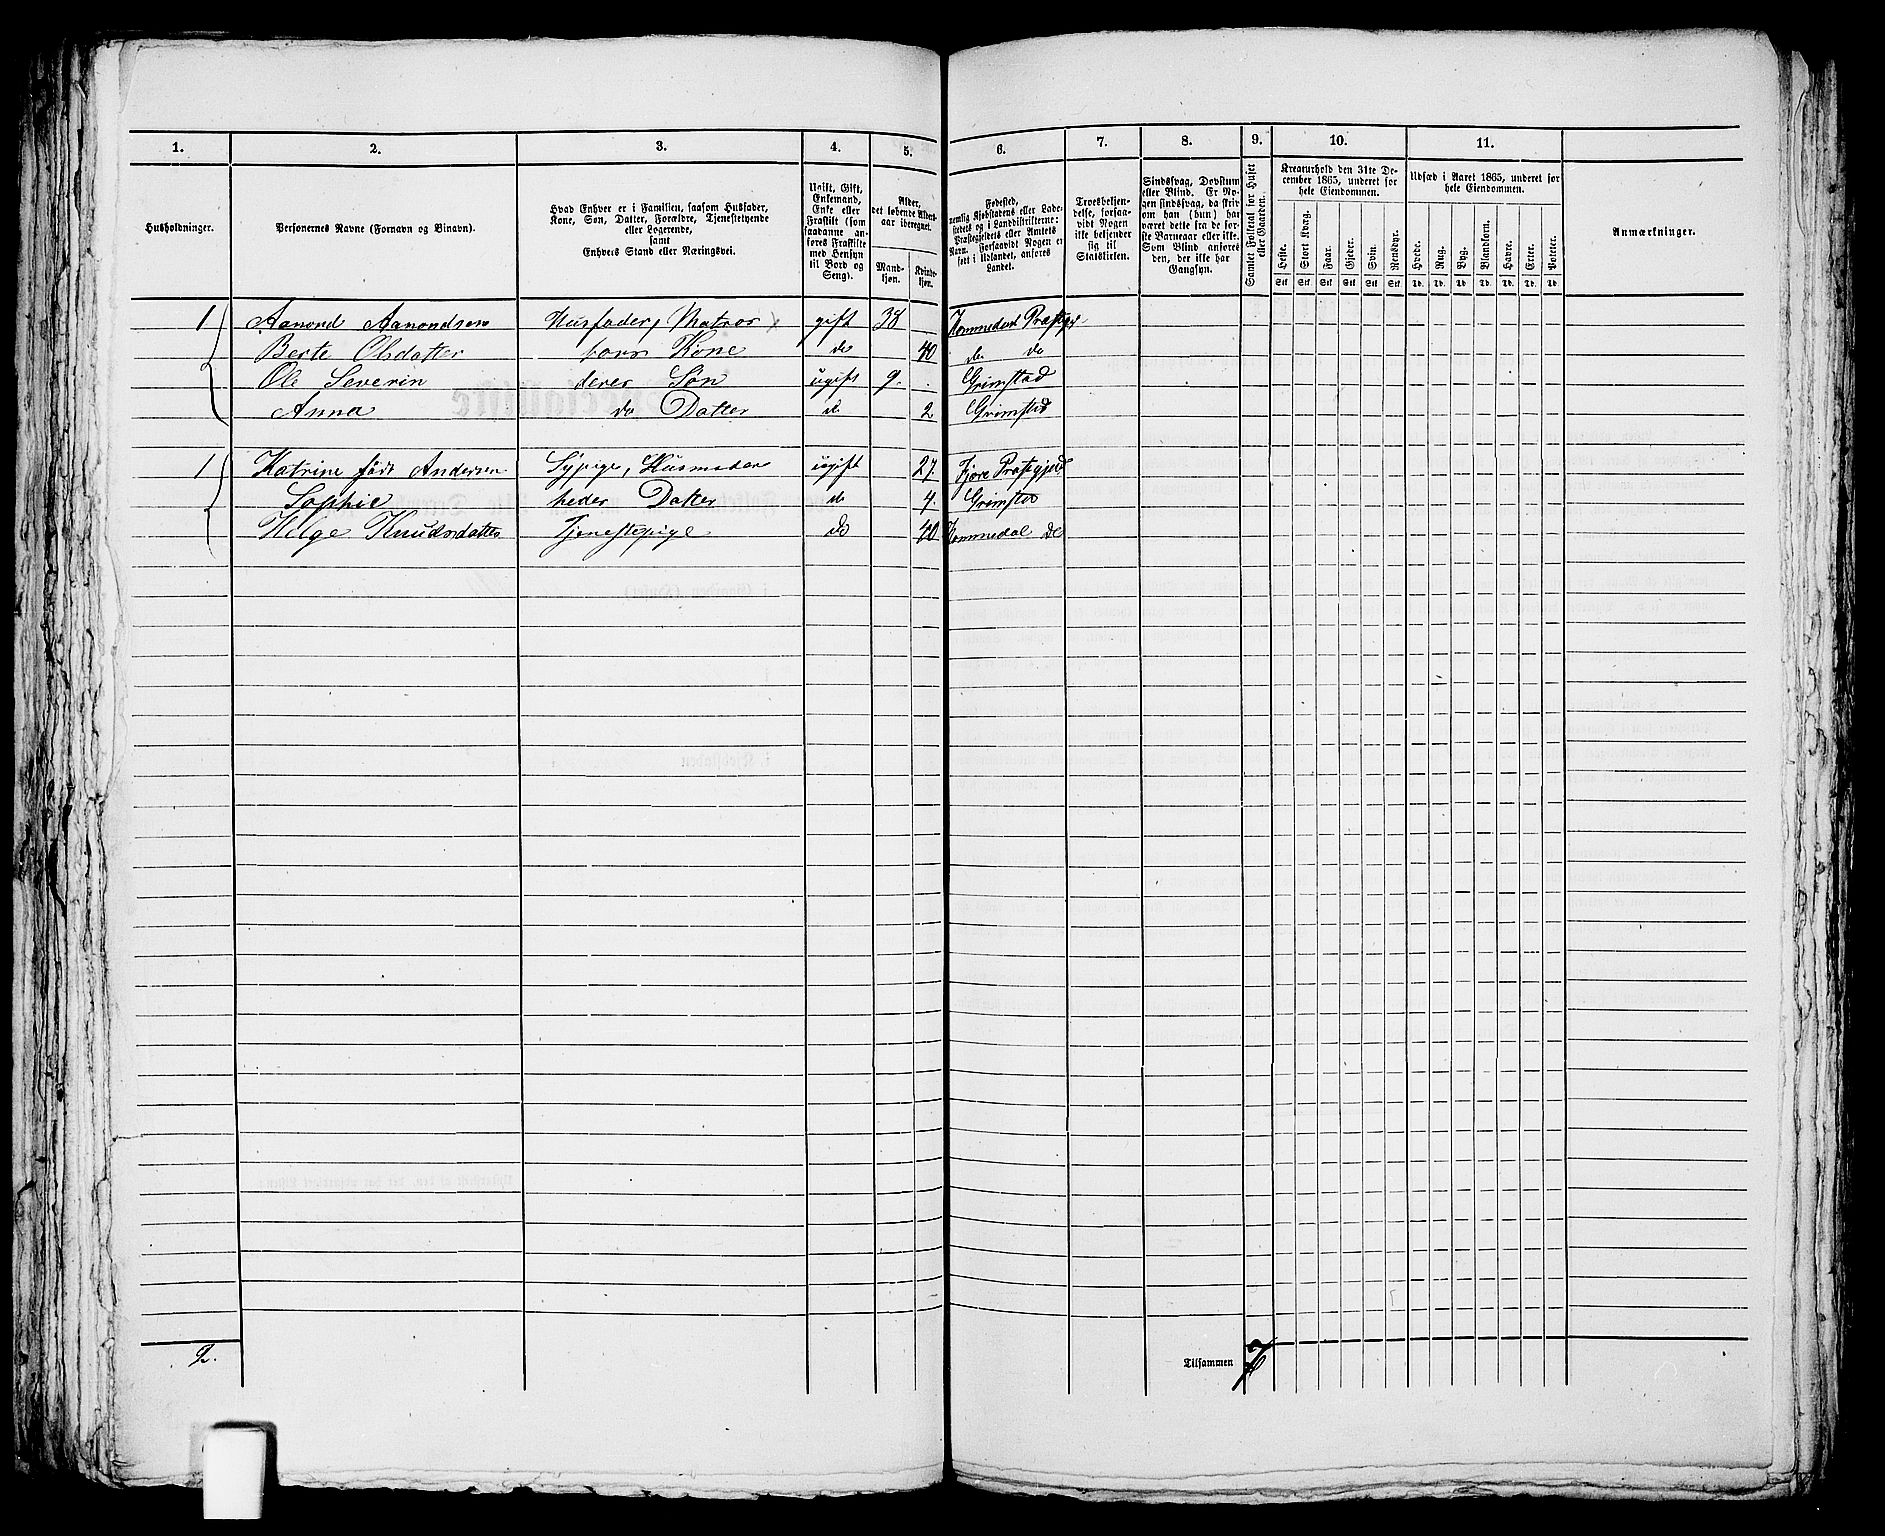 1. 2. 3. 4. 5. 6. 7. 8. 9. 10. 11.
Husholdninger.
Personernes Navne (Fornavn og Binavn).
Hvad Enhver er i Familien, saasom Husfader,
Kone, Søn, Datter, Forældre, Tjenestetyende
eller Logerende,
samt
Enhvers Stand eller Næringsvei.
Ugift, Gift,
Enkemand,
Enke eller
Fraskilt (som
saadanne an-
føres Fraskilte
med Hensyn
til Bord og
Seng).
Alder,
det løbende Alders-
aar iberegnet.
Mand-
kjøn.
Kvinde-
kjøn.
Fødested,
nemlig Kjøbstadens eller Lade-
stedets og i Landdistrikterne:
Præstegjeldets eller Amtets
Navn. Forsaavidt Nogen er
født i Udlandet, anføres
Landet.
Troesbekjen-
delse, forsaa-
vidt Nogen
ikke bekjender
sig til
Statskirken.
Sindssvag, Døvstum
eller Blind. Er No-
gen sindssvag, da skri-
ves om han (hun) har
været dette fra de før-
ste Barneaar eller ikke.
Som Blind anføres
den, der ikke har
Gangsyn.
Samlet Folketal for Huset
eller Gaarden.
Kreaturhold den 31te De-
cember 1865, underet for
hele Eiendommen.
Heste. Stort Kvæg. Faar. Gjeder. Svin. Rensdyr.
Stk Stk Stk Stk Stk Stk
Udsæd i Aaret 1865, underet for
hele Eiendommen.
Hvede. Rug. Byg. Blandkorn. Havre. Erter. Poteter.
Td. Td. Td. Td. Td. Td. Td.
Anmærkninger.
1 Aanond Aanondsen Husfader, Matros gift 38 Hommedal Præstegj
Berte Olsdatter hans Kone do 40 do do
Ole Severin deres Søn ugift 9. Grimstad
Anna do Datter d 2 Grimstad
1 Katrine født Andersen Sypige, Husmoder ugift 27. Fjære Præstegjeld
Sophie hendes Datter do 4. Grimstad
Helge Knudsdatter Tjenestepige do 40 Hommedal do
2. Tilsammen 7